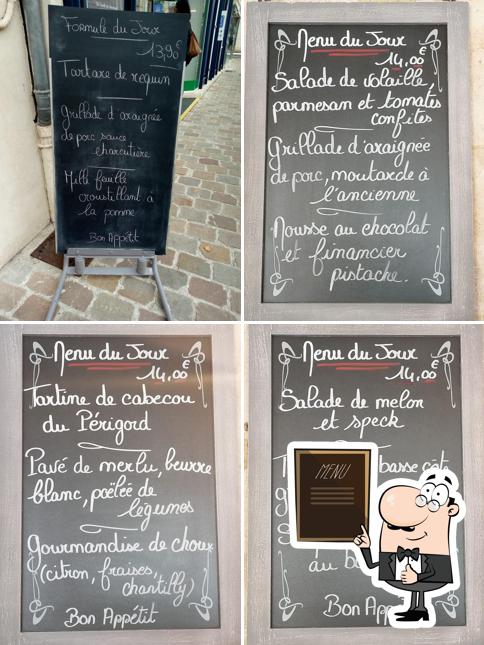 Formule du Jour
13,90€
Tartare de requin
Grillade d'araignée
de porc sauce
charcutière
Mille feuille
croustillant à
la pomme
Bon Appétit
Menu du Jour
14,00€
Salade de volaille,
parmesan et tomates
confites
Grillade d'araignée
de porc, moutarde à
l'ancienne
Mousse au chocolat
et financier
pistache.
Menu du Jour
14,00€
Tartine de cabecou
du Périgord
Pavé de merlu, beurre
blanc, poëlée de
légumes
Gourmandise de choux
(citron, fraises,
chantilly)
Bon Appétit
Menu du Jour
14,00€
Salade de melon
et speck
basse côte
MENU
au
Bon App